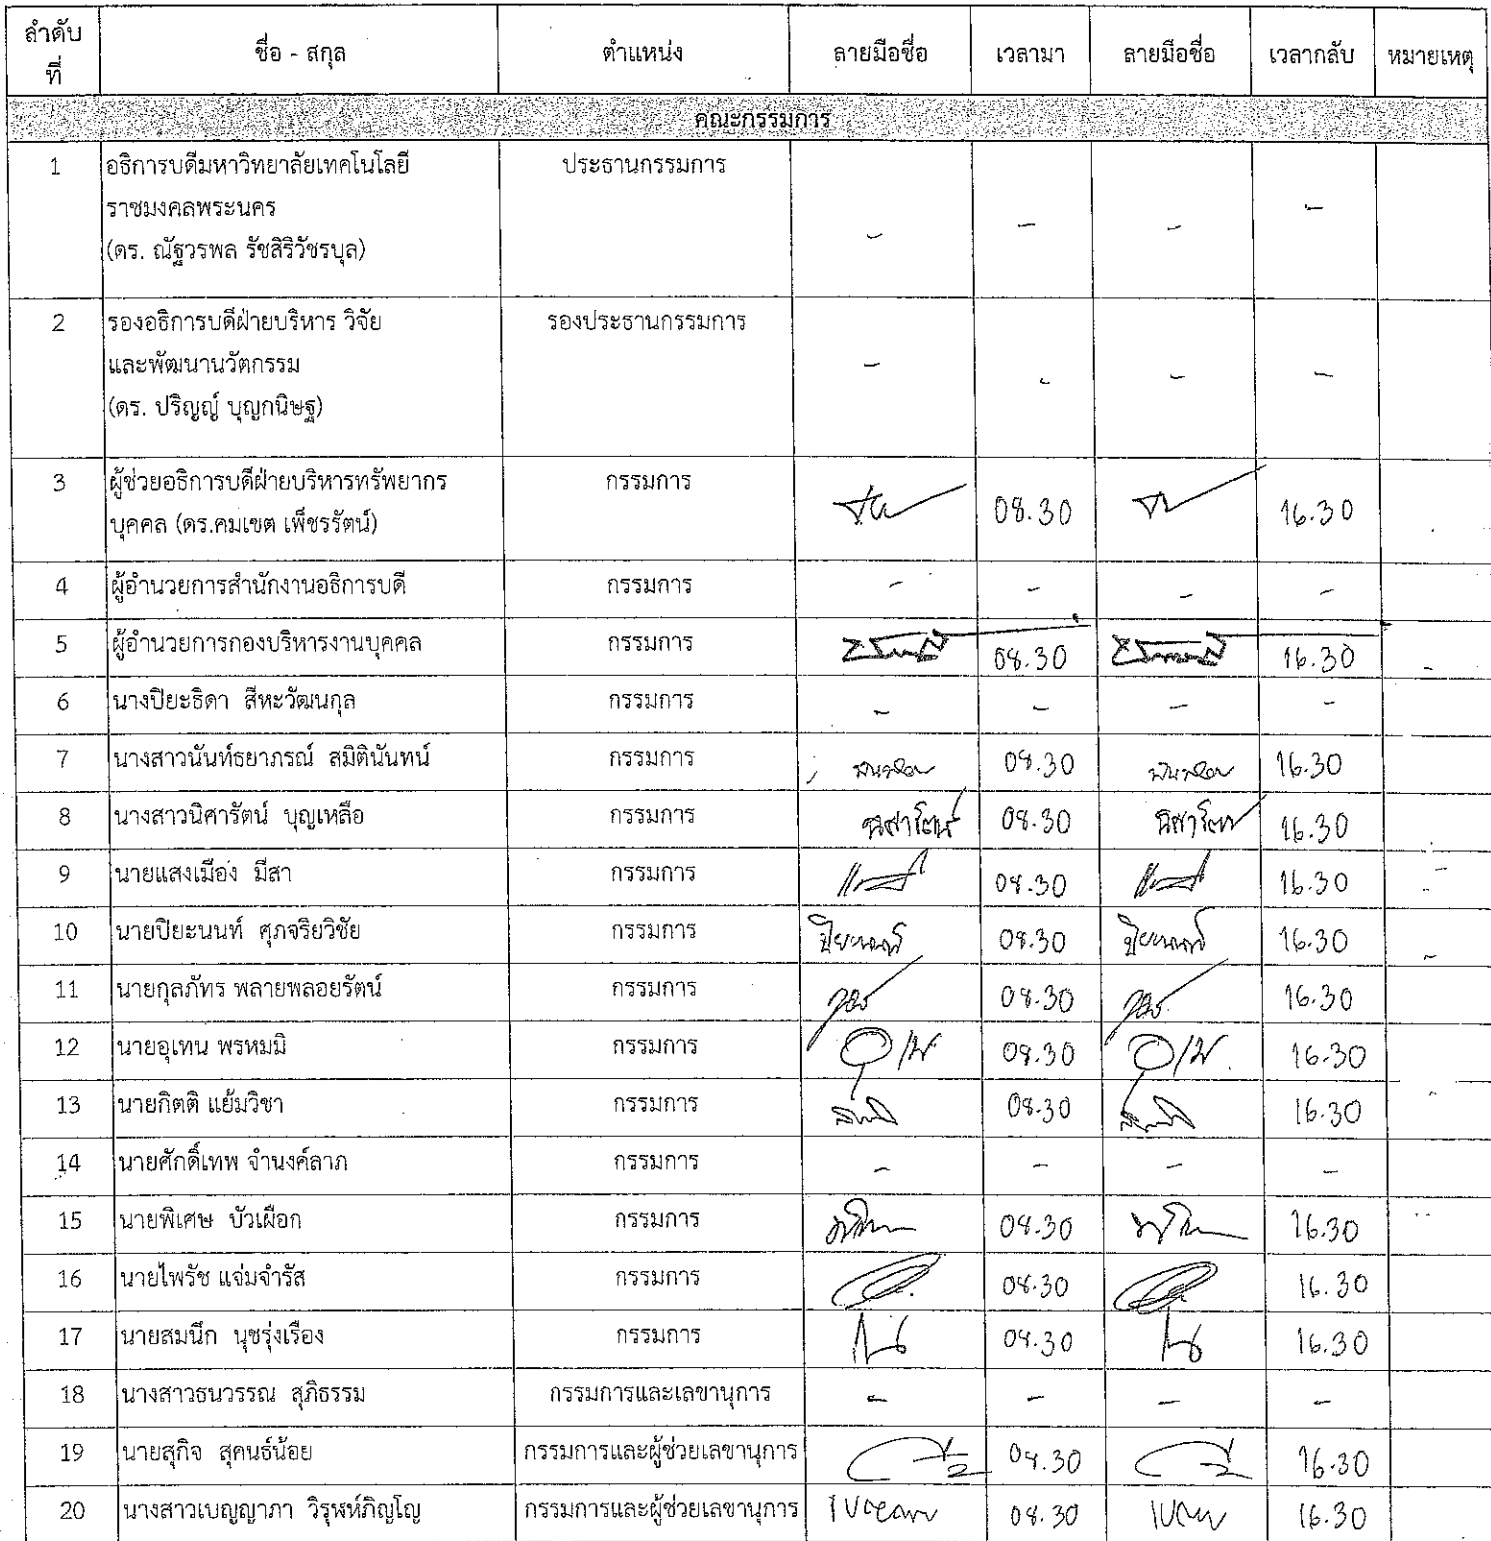 ลำดับที่ ชื่อ - สกุล ตำแหน่ง ลายมือชื่อ เวลามา ลายมือชื่อ เวลากลับ หมายเหตุ
คณะกรรมการ
1 อธิการบดีมหาวิทยาลัยเทคโนโลยี ประธานกรรมการ
ราชมงคลพระนคร - - - -
(ดร. ณัฐวรพล รัชสิริวัชรบุล)
2 รองอธิการบดีฝ่ายบริหาร วิจัย รองประธานกรรมการ
และพัฒนานวัตกรรม - - - -
(ดร. ปริญญ์ บุญกนิษฐ)
3 ผู้ช่วยอธิการบดีฝ่ายบริหารทรัพยากร กรรมการ
บุคคล (ดร.คมเขต เพ็ชรรัตน์) 08.30 16.30
4 ผู้อำนวยการสำนักงานอธิการบดี กรรมการ - - - -
5 ผู้อำนวยการกองบริหารงานบุคคล กรรมการ 08.30 16.30
6 นางปิยะธิดา สีหะวัฒนกุล กรรมการ - - - -
7 นางสาวนันท์ธยาภรณ์ สมิตินันทน์ กรรมการ 08.30 16.30
8 นางสาวนิศารัตน์ บุญเหลือ กรรมการ นิศารัตน์ 08.30 นิศารัตน์ 16.30
9 นายแสงเมือง มีสา กรรมการ 08.30 16.30
10 นายปิยะนนท์ ศุภจริยวิชัย กรรมการ ปิยะนนท์ 08.30 ปิยะนนท์ 16.30
11 นายกุลภัทร พลายพลอยรัตน์ กรรมการ 08.30 16.30
12 นายอุเทน พรหมมิ กรรมการ 08.30 16.30
13 นายกิตติ แย้มวิชา กรรมการ 08.30 16.30
14 นายศักดิ์เทพ จำนงค์ลาภ กรรมการ - - - -
15 นายพิเศษ บัวเผือก กรรมการ 08.30 16.30
16 นายไพรัช แจ่มจำรัส กรรมการ 08.30 16.30
17 นายสมนึก นุชรุ่งเรือง กรรมการ 08.30 16.30
18 นางสาวธนวรรณ สุภิธรรม กรรมการและเลขานุการ - - - -
19 นายสุกิจ สุคนธ์น้อย กรรมการและผู้ช่วยเลขานุการ 08.30 16.30
20 นางสาวเบญญาภา วิรุฬห์ภิญโญ กรรมการและผู้ช่วยเลขานุการ 08.30 16.30